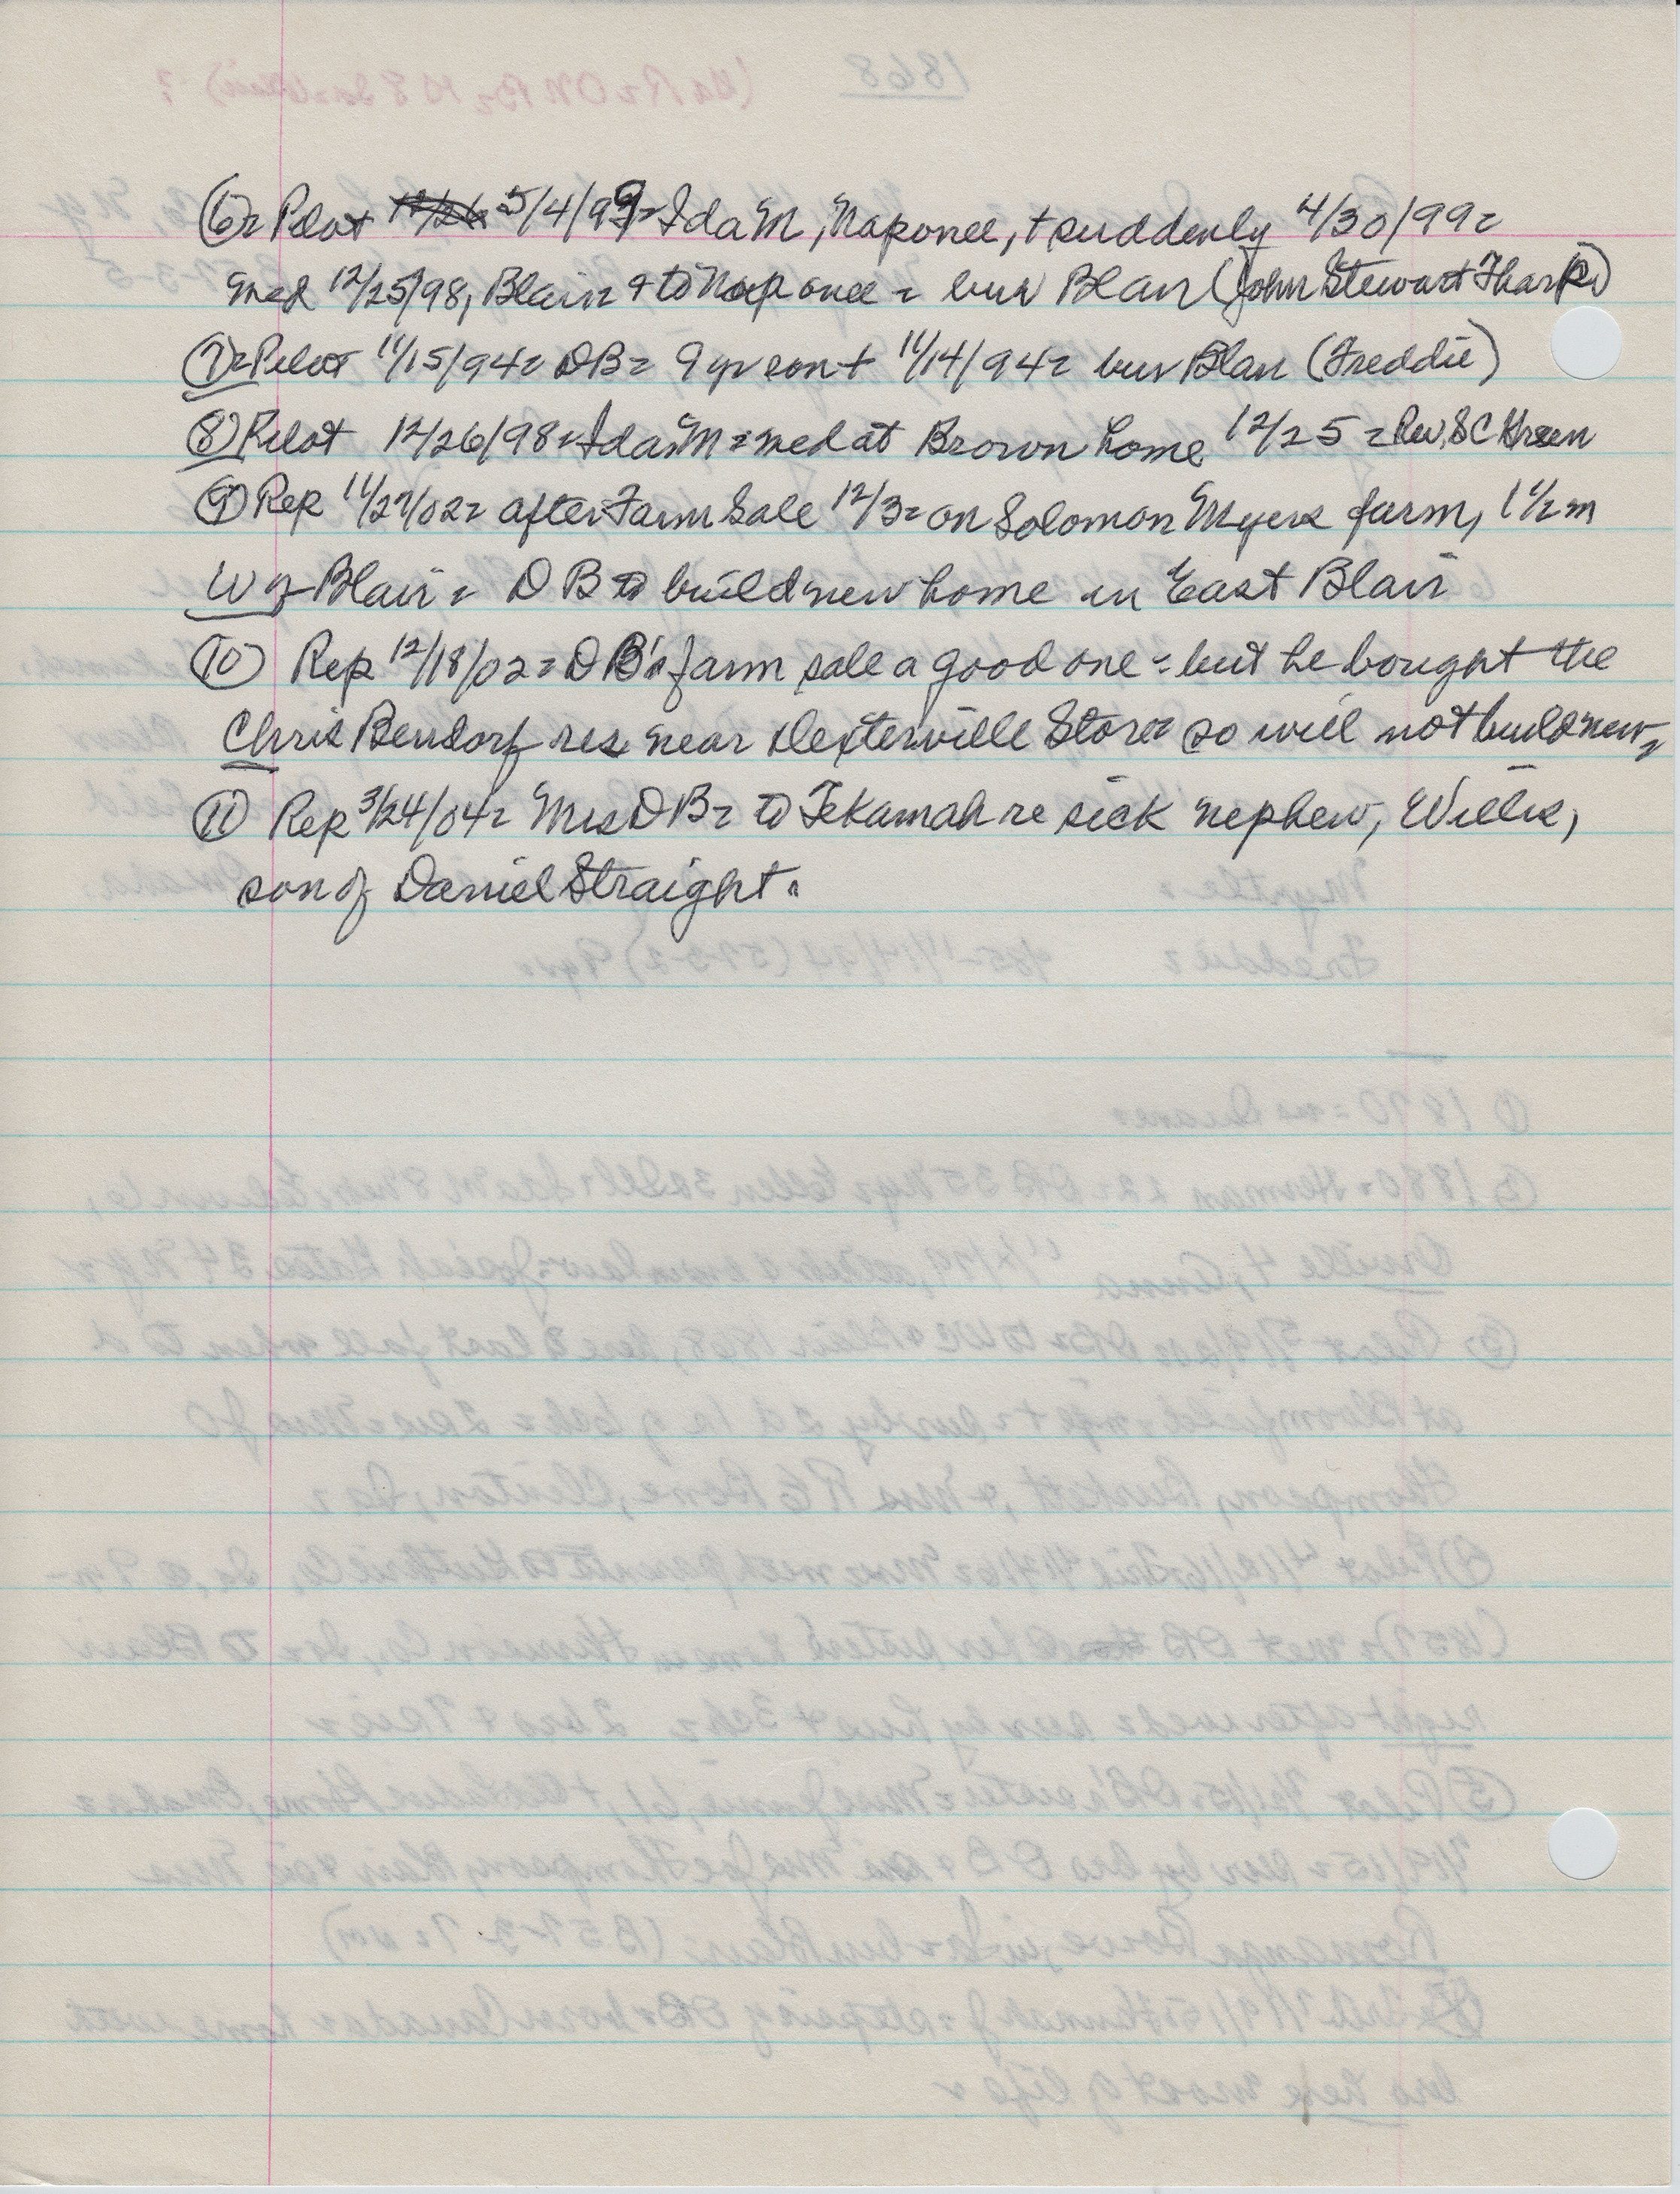 (6)= Pilot 12/26 5/4/99= Ida M, Naponee, + suddenly 4/30/99=
med 12/25/98, Blair= & to Naponee = bur Blair (John Stewart Tharp)
(7)= Pilot 11/15/94= DB= 9 yr son + 11/14/94= bur Blair (Freddie)
(8) Pilot 12/26/98= Ida M= med at Brown home 12/25= Rev. SC Green
(9) Rep 11/27/02= after Farm Sale 12/3= on Solomon Myers farm, 1 1/2 m
W of Blair= DB to build new home in East Blair
(10) Rep 12/18/02= DB's farm sale a good one= but he bought the
Chris Bendorf res near Dexterville Store= so will not build new=
(11) Rep 3/24/04= Mrs DB= to Tekamah re sick nephew, Willis,
son of Daniel Straight=